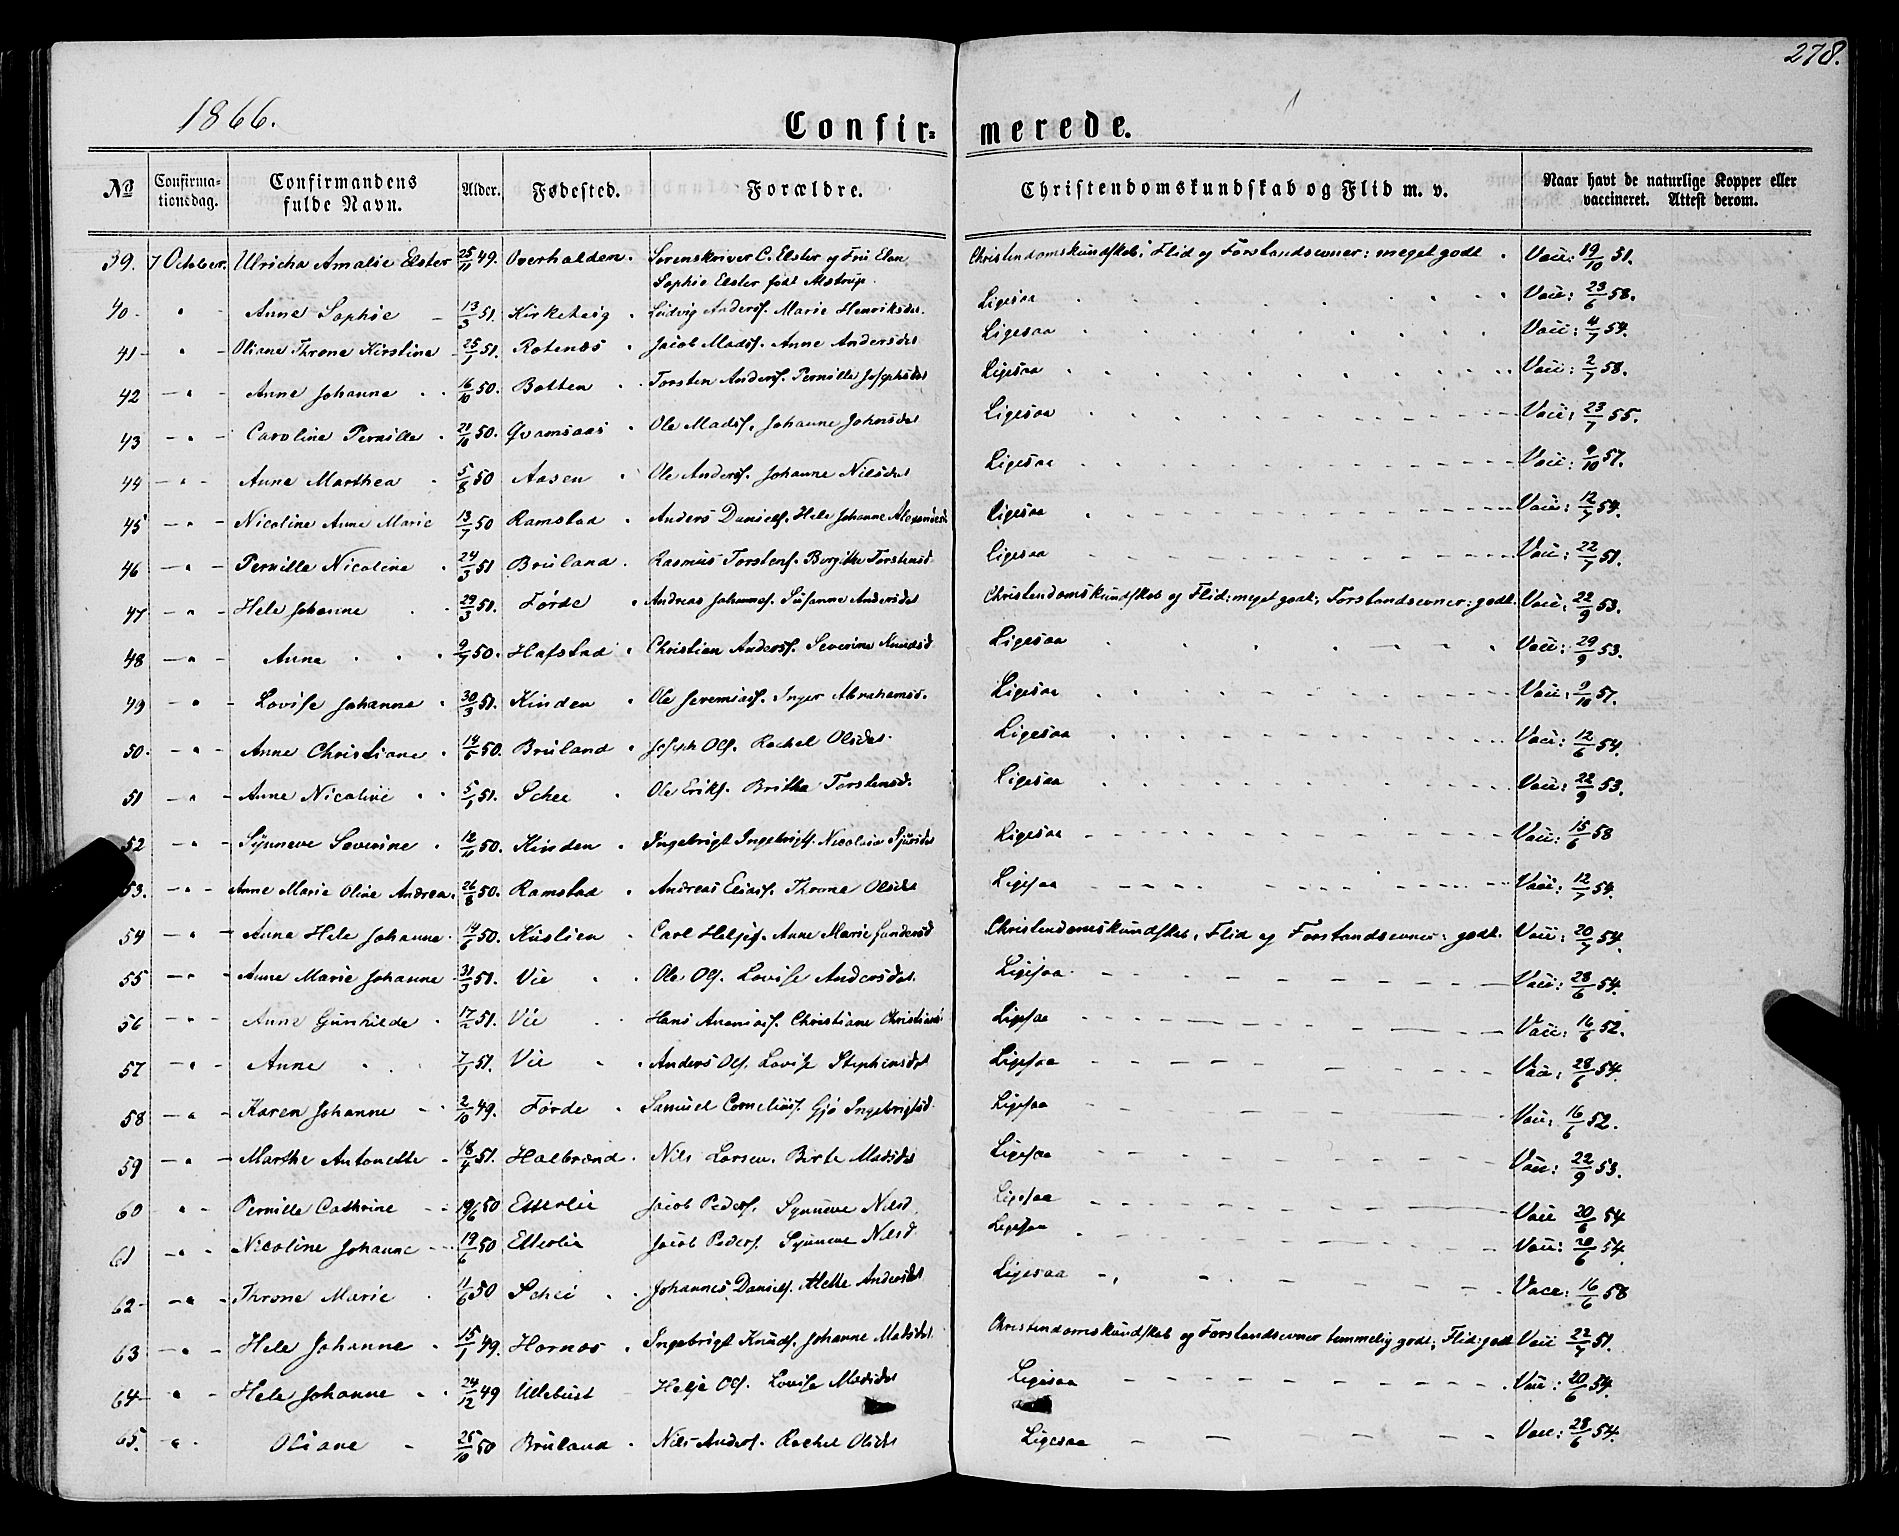 278.
1866.
Confir- merede.
No Confirma-tionsdag. Confirmandens fulde Navn. Alder. Fødested. Forældre. Christendomskundskab og Flid m. v. Naar havt de naturlige Kopper eller vaccineret. Attest derom.
39. 7 October. Ulricha Amalie Elster 25/11 49. Overhalden. Sorenskriver C. Elster og Fru Elen Christendomskundskab, Flid og Forstandsevner: meget godt. Vacc: 19/10 51.
Sophie Elster født Alstrup.
40 - " - Anne Sophie 13/3 51. Kirketeig Ludvig Anderss. Marie Henriksdat. Ligesaa Vacc: 23/6 58.
41 - " - Oliane Throne Kirstine 25/1 51. Rotenæs Jacob Madss. Anne Andersdat Ligesaa Vacc: 4/7 54.
42 - " - Anne Johanne 16/10 50. Botten Torsten Anderss. Pernille Josephsdat Ligesaa Vacc: 2/7 58.
43 - " - Caroline Pernille 21/10 50. Qvamsaas Ole Madss. Johanne Johnsdat Ligesaa Vacc: 23/7 55.
44 - " - Anne Marthea 5/8 50 Aasen Ole Anderss. Johanne Nilsdat Ligesaa Vacc: 9/10 57.
45 - " - Nicoline Anne Marie 13/7 50 Ramstad Anders Daniels. Hele Johanne Ligesaa Vacc: 12/7 54.
46 - " - Pernille Nicoline 24/3 51 Bruland. Rasmus Torstens. Borgithe Torstensd. Ligesaa Vacc: 22/7 51.
47 - " - Hele Johanne 29/3 51. Førde Andreas Johanness. Susanne Andersdat Christendomskundskab og Flid: meget godt; Forstandsevner: godt. Vacc: 22/9 53.
48 - " - Anne 9/7 50. Hafstad Christian Anderss. Severine Knudsd Ligesaa Vacc: 29/9 53.
49 - " - Lovise Johanne 30/3 51. Kinden Ole Jeremiass. Inger Abrahamsd. Ligesaa Vacc: 9/10 57.
50. - " - Anne Christiane 14/5 50. Bruland Joseph Ols. Rachel Olsdat. Ligesaa Vacc: 12/6 54.
51 - " - Anne Nicoline 5/1 51. Schee Ole Eriks. Britha Torstensd. Ligesaa Vacc: 22/9 53.
52 - " - Synneve Severine 12/11 50. Kinden Ingebrigt Ingebrigts. Nicolina Sjursdat Ligesaa Vacc: 15/6 58
53. - " - Anne Marie Oline Andrea. 26/8 50. Ramstad Andreas Eliass. Throne Olsdat Ligesaa Vacc: 12/7 54.
54 - " - Anne Hele Johanne. 50. Kuslien Carl Helges. Anne Marie Christendomskundskab, Flid og Forstandsevner: godt. Vacc: 20/7 54.
55 - " - Anne Marie Johanne 31/3 51. Vie Ole Ols. Lovise Andersdat. Ligesaa Vacc: 28/6 54.
56 - " - Anne Gunhilde 17/2 51. Vie Hans Ananiass. Christiane Ligesaa Vacc: 16/6 52.
57 - " - Anne 7/1 51. Vie Anders Ols. Lovise Stephensdat Ligesaa Vacc: 28/6 54.
58 - " - Karen Johanne 2/10 49. Førde Samuel Cornelius. Gjø Ingebrigtsd. Ligesaa Vacc: 16/6 52.
59 - " - Marthe Antonette 18/4 51. Halbrænd. Nils Larsen. Birte Madsdat Ligesaa Vacc: 22/9 53.
60 - " - Pernille Cathrine 19/6 50 Etterlie Jacob Peders. Synneve Nilsd. Ligesaa Vacc 20/6 54
61 - " - Nicoline Johanne 19/6 50 Etterlie Jacob Peders. Synneve Nilsd Ligesaa Vacc: 20/6 54.
62 - " - Throne Marie 11/6 50 Schei Johannes Daniels. Helle Andersdat Ligesaa Vacc: 16/6 58
63 - " - Hele Johanne 15/1 49. Hornæs Ingebrigt Knuds. Johanne Matsdat. Christendomskundskab og Forstandsevner temmelig godt; Flid: godt Vacc 22/7 51.
64 - " - Hele Johanne 24/12 49 Ullebust Helje Ols. Lovise Madsdat Ligesaa Vacc: 20/6 54.
65. - " - Oliane 25/10 50 Bruland Nils Anders. Rachel Olsdat Ligesaa Vacc: 28/6 54.